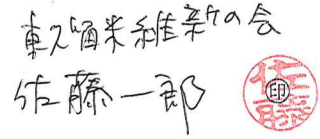 東久留米維新の会
佐藤一郎
佐藤
印